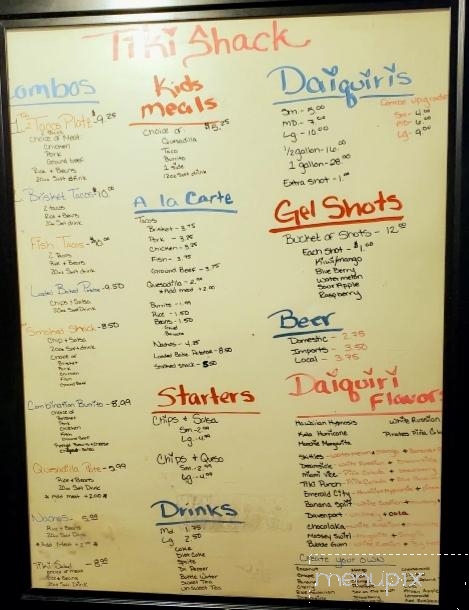 Tiki Shack
ombos
2 Tacos Plate $9.25
2 Tacos
Choice of Meat
Chicken
Pork
Ground beef
Rice + Beans
20oz Soft drink
Brisket Tacos $10.00
2 tacos
Rice + Beans
20oz Soft drink
Fish Tacos $10.00
2 Tacos
Rice + Beans
20oz Soft drink
Loaded Baked Potato - 9.50
Chips + Salsa
20oz Soft Drink
Smoked Shack - 8.50
Chip + Salsa
20oz Soft drink
Choice of
Brisket
Pork
Chicken
Fish
Ground Beef
Combination Burrito - 8.99
Choice of
Brisket
Pork
Chicken
Fish
Ground Beef
Quesadilla Plate - 5.99
Rice + Beans
20oz Soft Drink
* Add meat + 2.00 *
Nachos - 5.99
Rice + Beans
20oz Soft Drink
Add Meat + 2
Salad - 8.99
Choice of meat
Rice + Beans
20oz Soft Drink
Kids
meals
Choice of: $5.25
Quesadilla
Taco
Burrito
1 side
12oz Soft drink
A la Carte
Tacos
Brisket - 3.75
Pork - 3.75
Chicken - 3.75
Fish - 3.95
Ground Beef - 3.75
Quesadilla - 2.00
+ Add meat + 2.00
Burrito - 1.99
Rice - 1.50
Beans - 1.50
Nachos - 4.25
Loaded Bake Potatoe - 8.50
Smoked Shack - 8.50
Starters
Chips + Salsa
Sm - 2.99
Lg - 4.99
Chips + Queso
Sm - 2.99
Lg - 4.99
Drinks
Md 1.75
Lg 2.50
Coke
Diet Coke
Sprite
Dr Pepper
Bottle Water
Sweet Tea
Un Sweet Tea
Daiquiris
Sm. - 5.00
MD - 7.00
Lg - 10.00
1/2 gallon - 16.00
1 gallon - 28.00
Extra Shot - 1.00
Combo upgrade
Sm - 4.00
MD - 6.00
Lg - 9.00
Gel Shots
Bucket of Shots - 12.00
Each Shot - $1.00
Kiwi/mango
Blue Berry
Watermelon
Sour Apple
Raspberry
Beer
Domestic - 2.75
Imports - 3.50
Local - 3.75
Daiquiri
Flavors
Hawaiian Hypnosis White Russian
Kids Hurricane Pirates Piña Cola
Hoochie Margarita
Skittles
Dreamsicle
Miami Vice
Tiki Punch
Emerald City
Banana Split
Davenport + cola
Chocolaka
Massey Swirl
Bubble Gum
Create your own
menupix